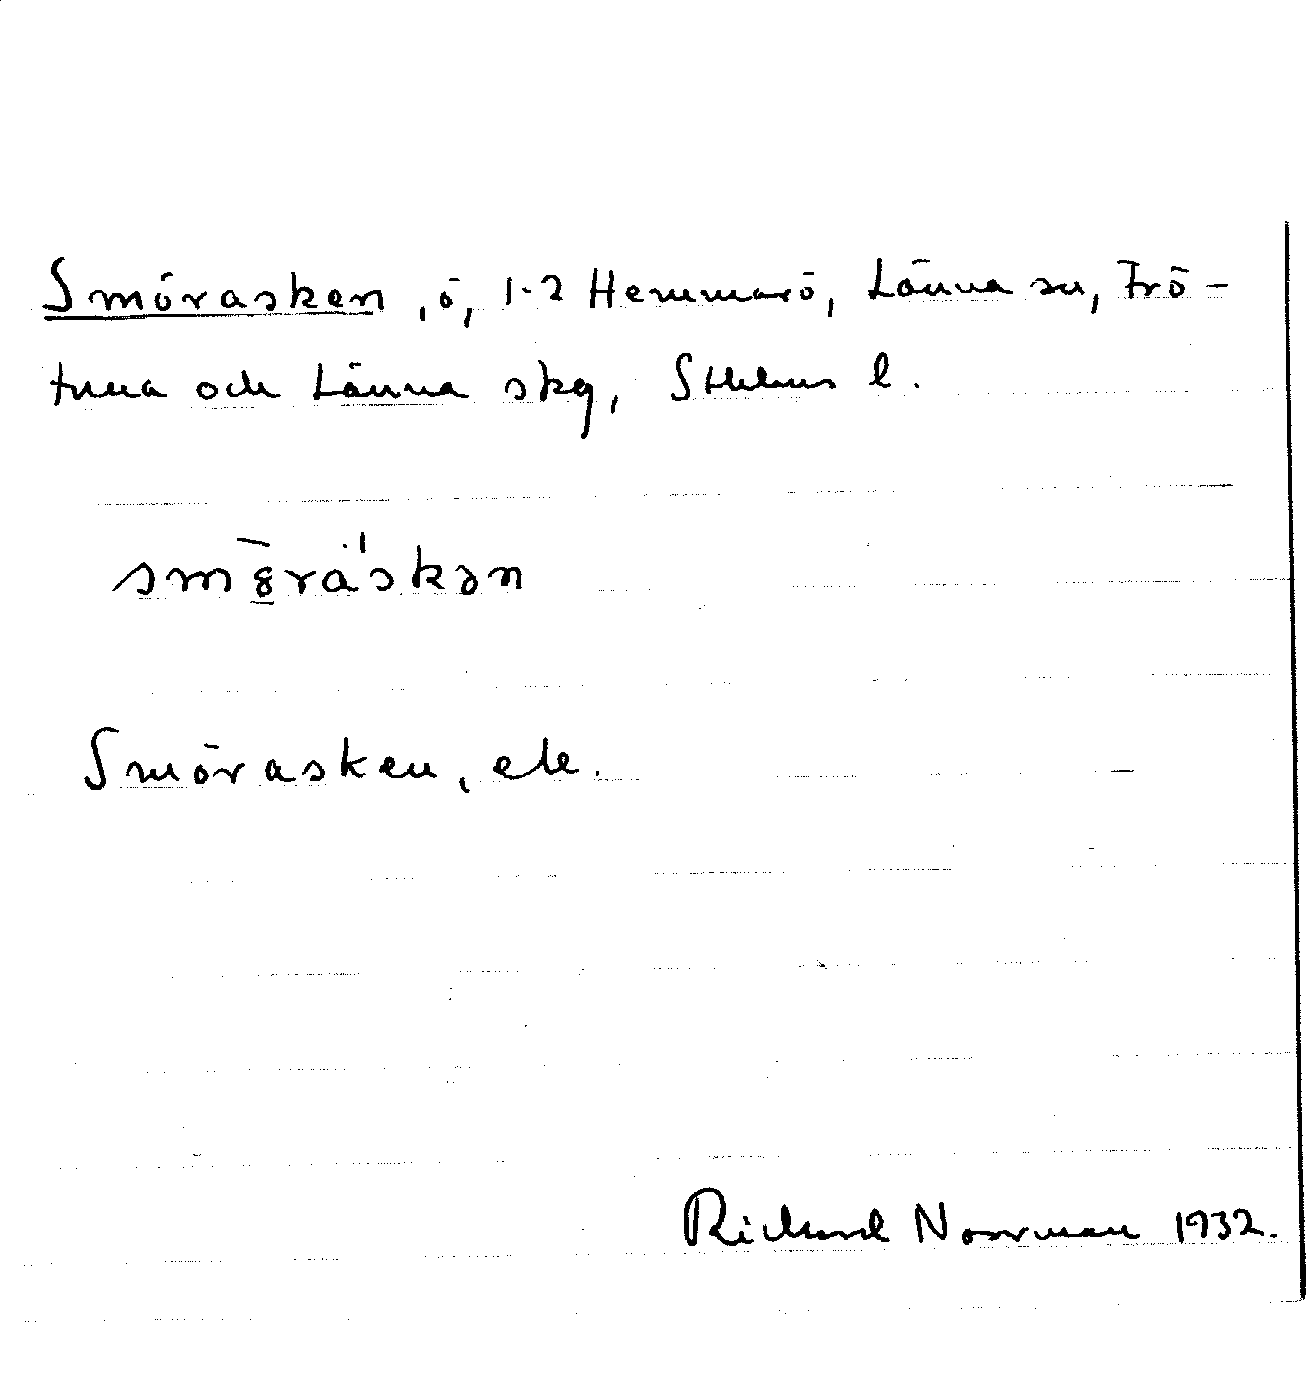 Smörasken, ö, 1-2 Hemmarö, Länna sn, Frö-
tuna och Länna skg, Sthlms l.
smȫ̱rà'skən
Smörasken, ek.
Rickard Norrman 1932.